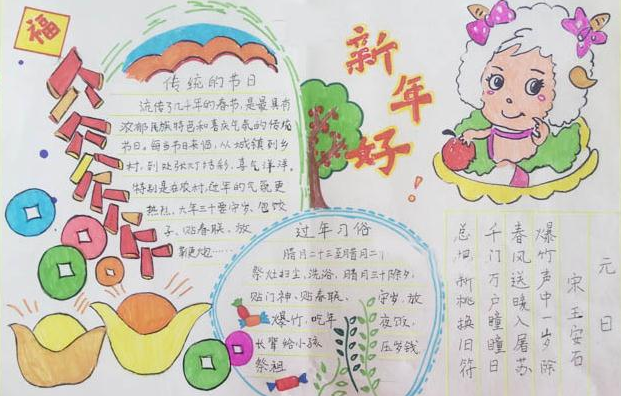 福
新年好!
传统的节日
流传了几千年的春节,是最具有
浓郁民族特色和喜庆气氛的传统
节日。每当节日来临,从城镇到乡
村,到处张灯结彩,喜气洋洋。
特别是在农村,过年的气氛更
热礼、大年三十要守岁、包饺
子、贴春联、放
过年习俗
腊月二十三至腊月二
祭灶扫尘、洗浴、腊月三十除夕,
贴门神、贴春联、 守岁、放
爆竹,吃年 夜饭,
长辈给小孩 压岁钱
祭祖
元日
宋 王安石
爆竹声中一岁除
春风送暖入屠苏
千门万户曈曈日
总把新桃换旧符